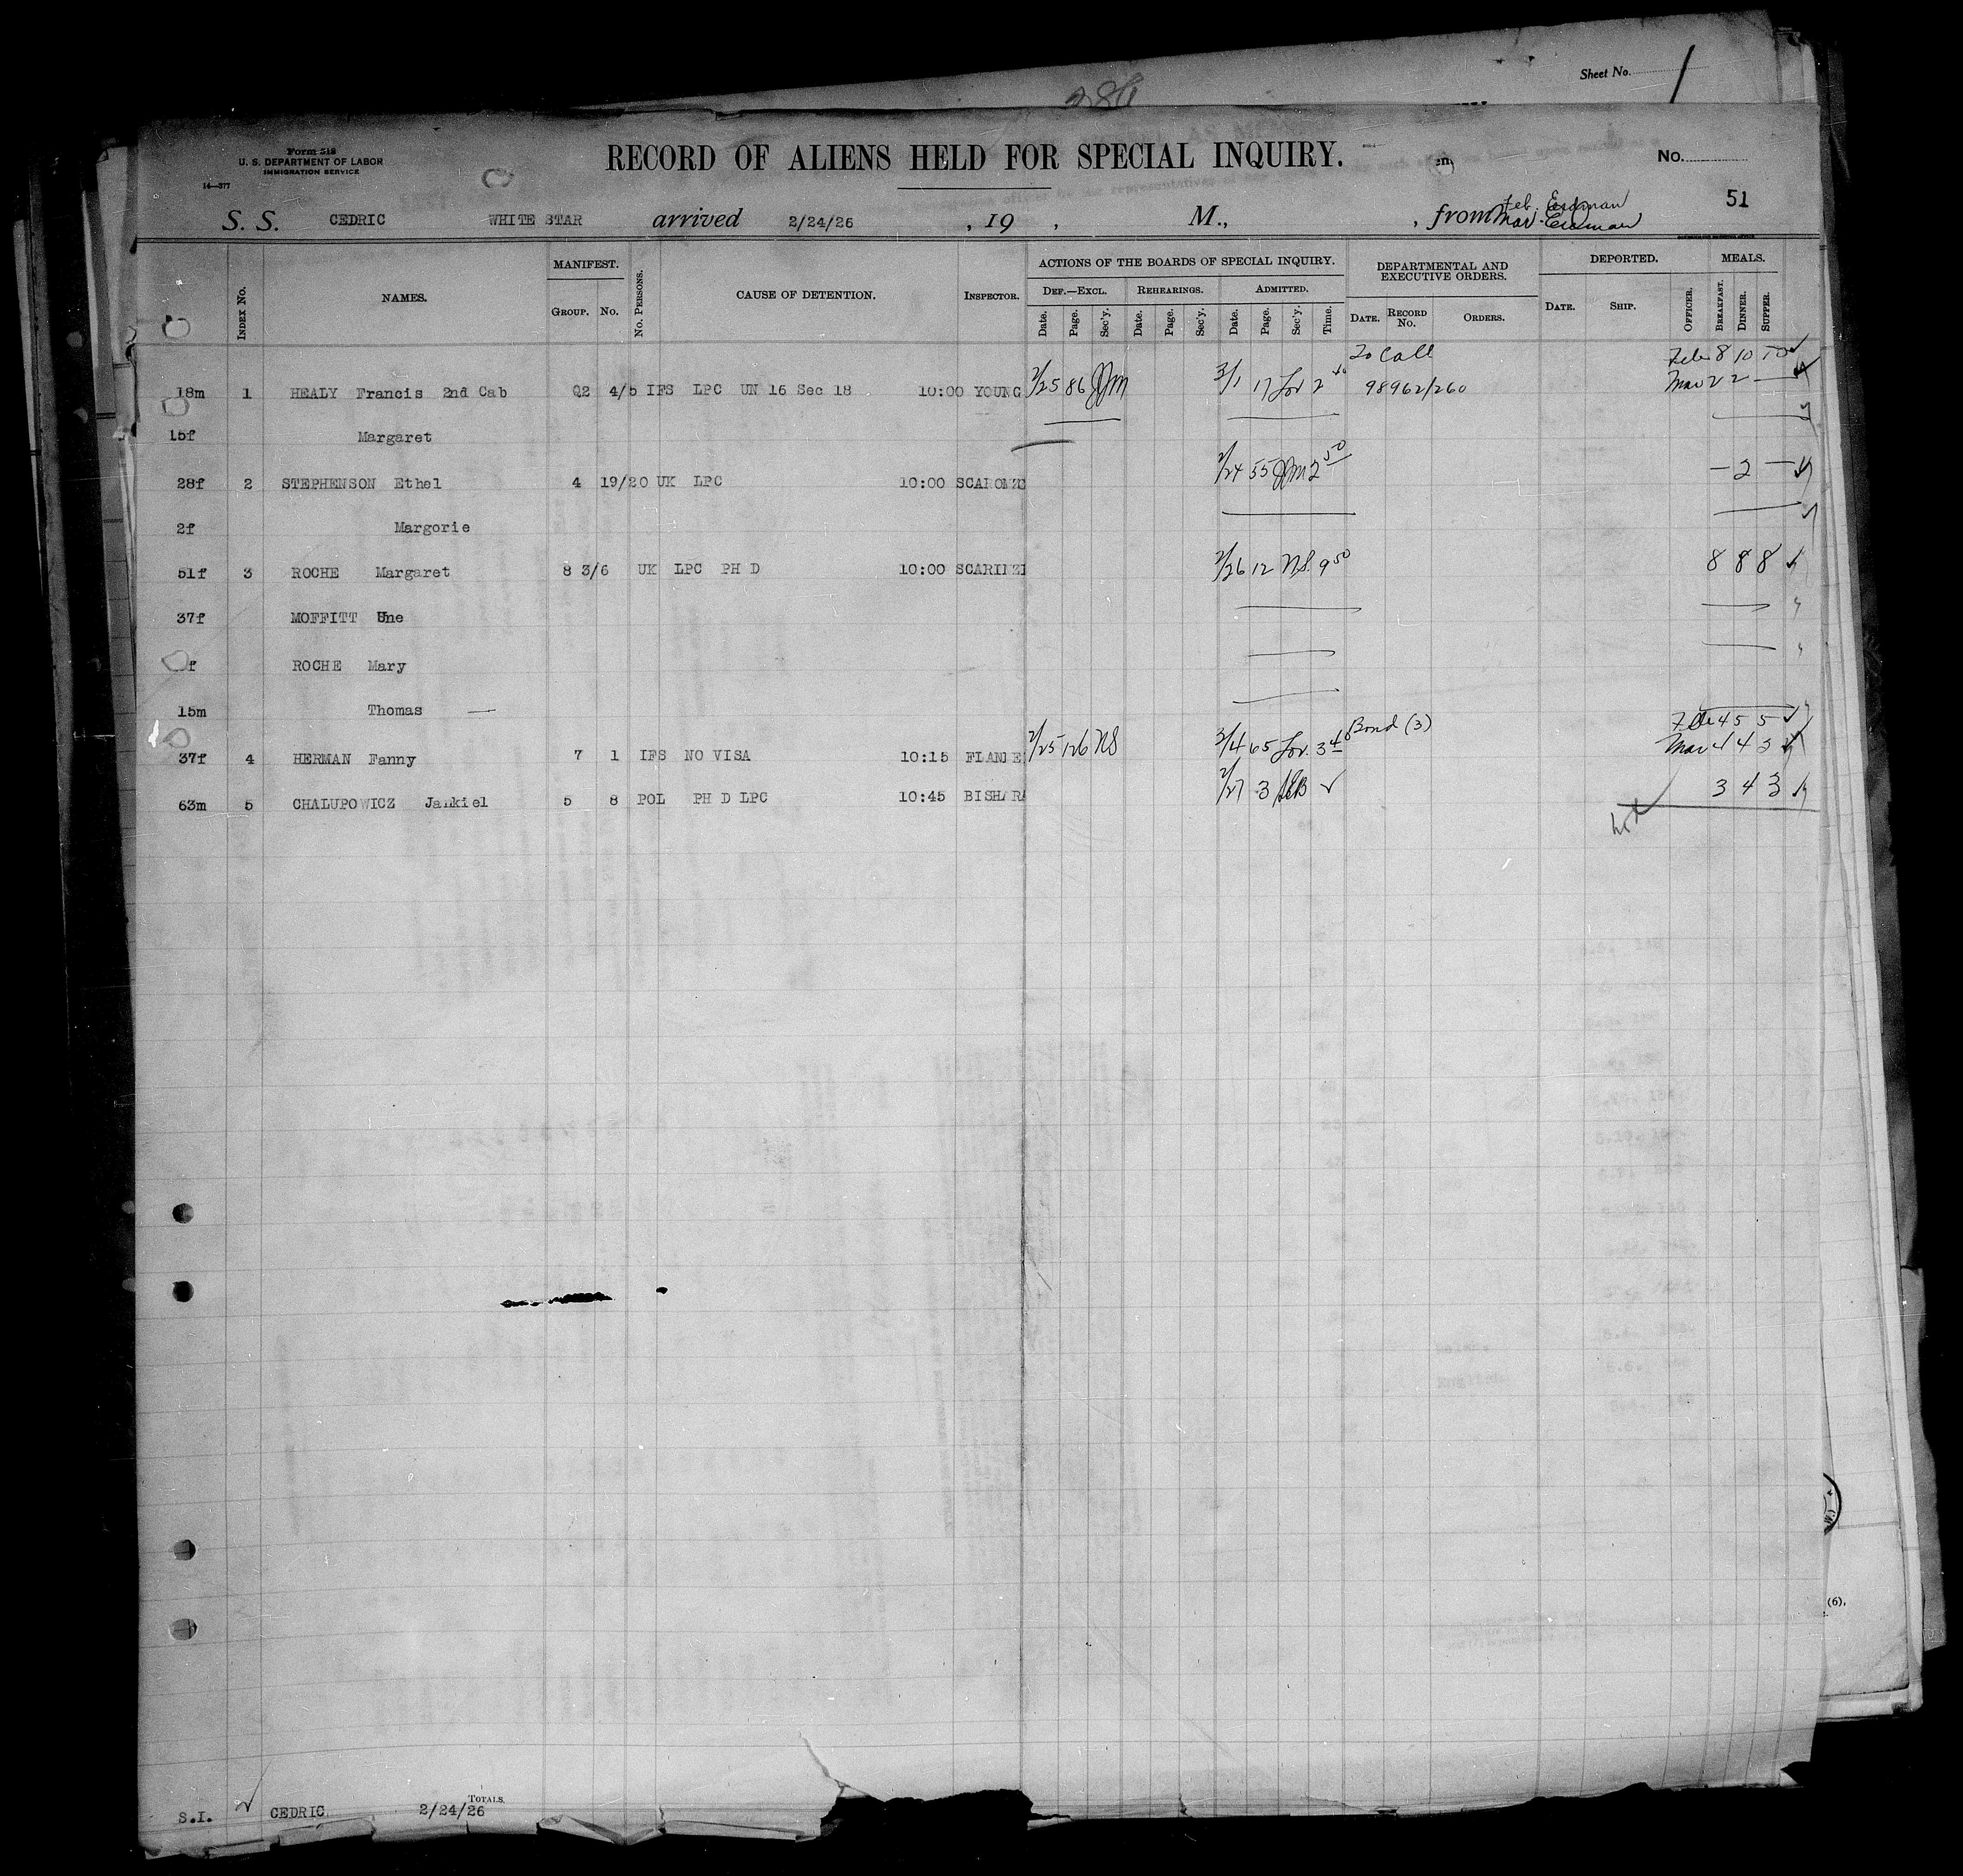 Sheet No. 1
Form 518
U. S. DEPARTMENT OF LABOR
IMMIGRATION SERVICE
14—377
RECORD OF ALIENS HELD FOR SPECIAL INQUIRY.
No.
51
S. S. CEDRIC WHITE STAR arrived 2/24/26 , 19 , M., , from Feb. Erdman
Mar. Erdman
INDEX No. NAMES. MANIFEST. GROUP. No. No. PERSONS. CAUSE OF DETENTION. INSPECTOR. ACTIONS OF THE BOARDS OF SPECIAL INQUIRY. DEPARTMENTAL AND EXECUTIVE ORDERS. DEPORTED. MEALS.
DEF.—EXCL. REHEARINGS. ADMITTED.
Date. Page. Sec'y. Date. Page. Sec'y. Date. Page. Sec'y. Time. DATE. RECORD No. ORDERS. DATE. SHIP. OFFICER. BREAKFAST. DINNER. SUPPER.
To Call Feb 8 10 10
18m 1 HEALY Francis 2nd Cab Q2 4/5 IFS LPC UN 16 Sec 18 10:00 YOUNG 2/25 86 JJM 3/1 17 Lor 2 98962/260 Mar 2 2 —
15f Margaret
28f 2 STEPHENSON Ethel 4 19/20 UK LPC 10:00 2/24 55 JJM 2 50 — 2 —
2f Margorie
51f 3 ROCHE Margaret 8 3/6 UK LPC PH D 10:00 2/26 12 NS. 9 50 8 8 8
37f MOFFITT Une
f ROCHE Mary
15m Thomas —
Bond (3) Feb 4 5 5
37f 4 HERMAN Fanny 7 1 IFS NO VISA 10:15 2/25 126 NS 3/4 65 Lor. 3 Mar 4 4 3
63m 5 CHALUPOWICZ Jankiel 5 8 POL PH D LPC 10:45 BISHARA 2/27 3 3 4 3
TOTALS.
S.I. CEDRIC 2/24/26
(6),